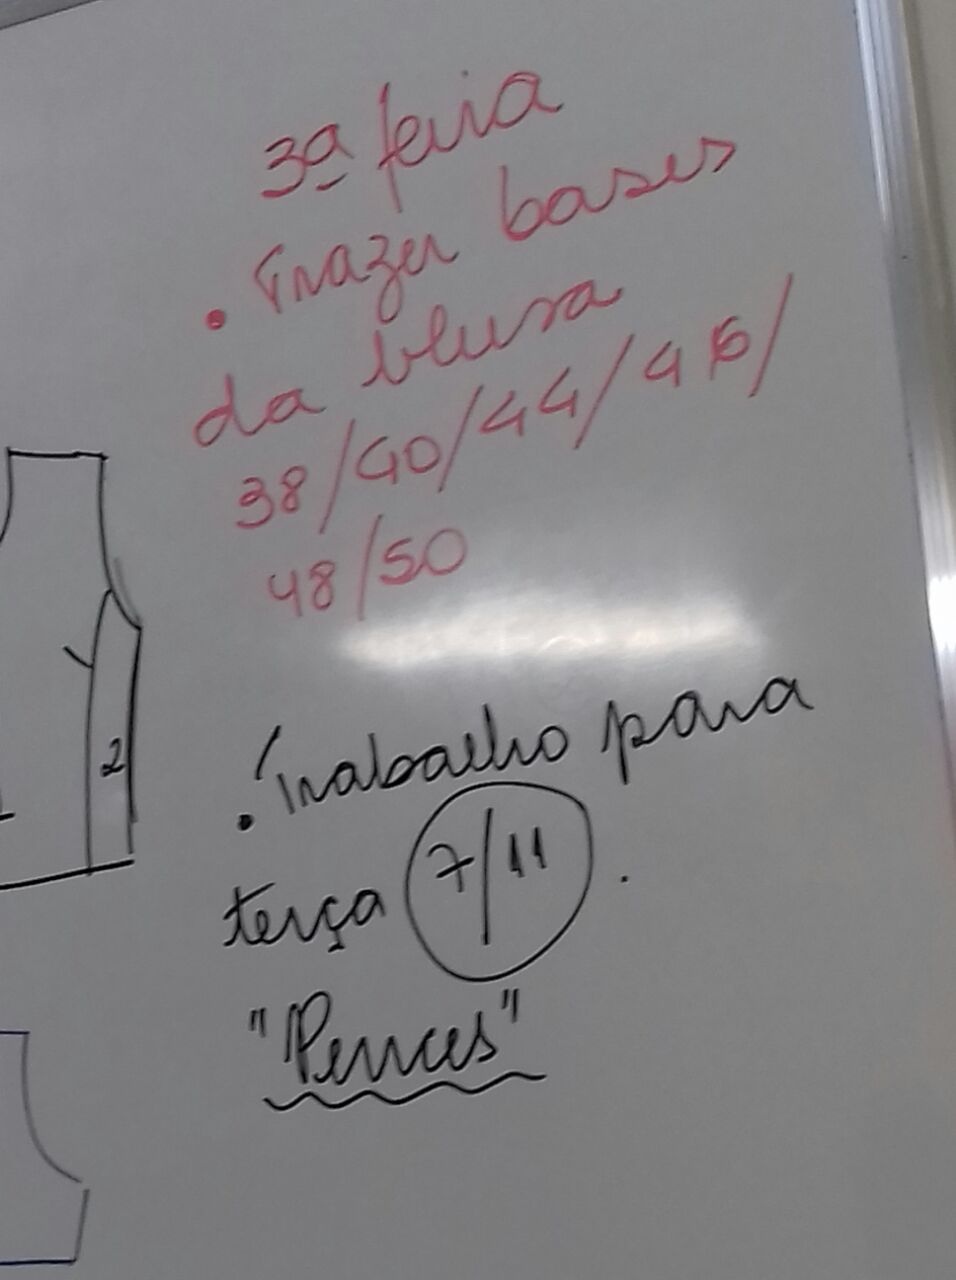 3ª feira
. Trazer bases
da blusa
38/40/44/46/
48/50
. Trabalho para
terça 7/11.
"Pences"
2